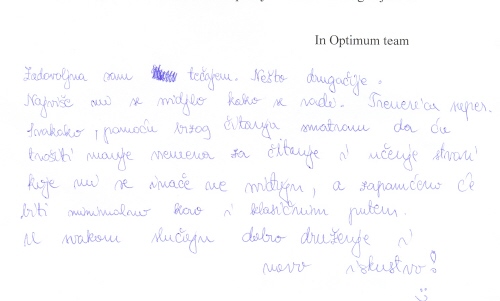 In Optimum team
Zadovoljna sam tečajem. Nešto drugačije.
Najviše mi se svidjelo kako se radi. Trenerica super.
Svakako, pomoću brzog čitanja smatram da ću
trošiti manje vremena za čitanje i učenje stvari
koje mi se inače ne sviđaju, a zapamćeno će
biti minimalno kao i klasičnim putem.
U svakom slučaju dobro druženje i
novo iskustvo!